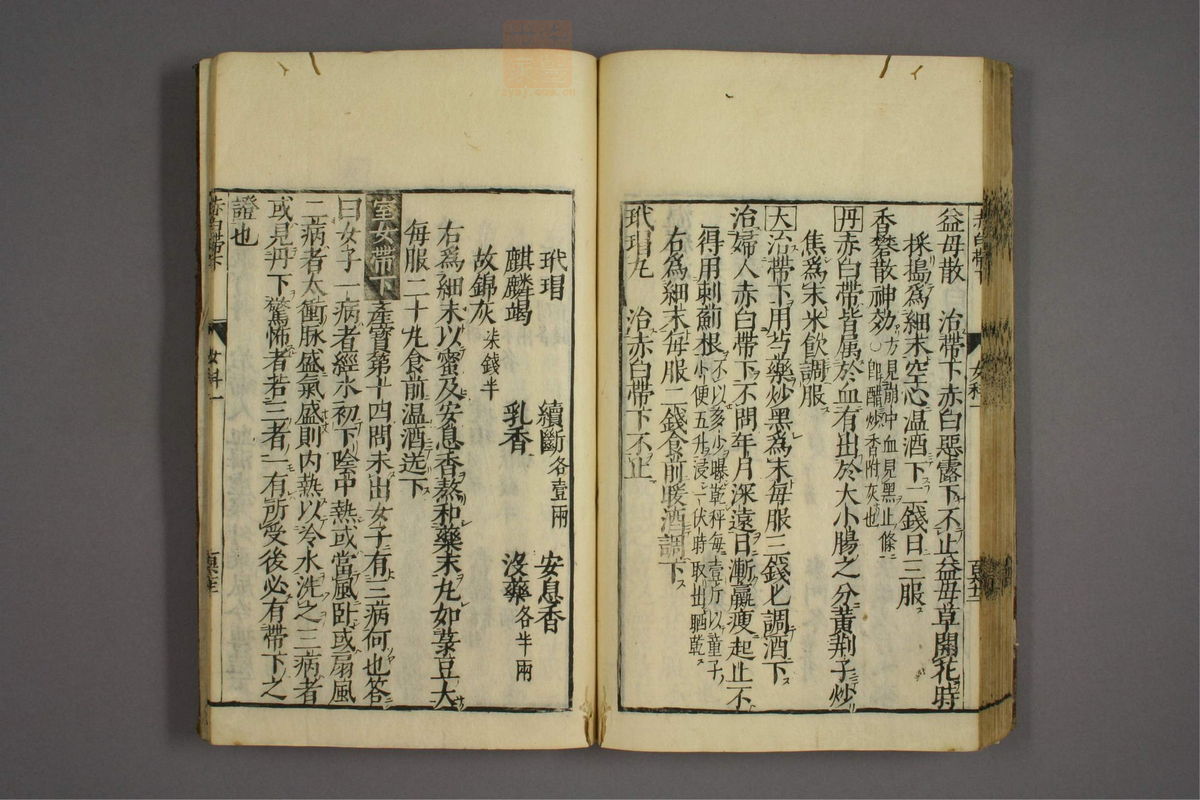 益母散　治帶下赤白惡露下不止益母草開花時
採搗爲細末空心温酒下一錢日三服
香礬散神効方見崩中血見黑止條○即醋炒香附灰也
丹赤白帶皆属於血有出於大小腸之分黄荆子炒
焦爲末米飲調服
大治帶下用芍藥炒黑爲末毎服三錢匕調酒下
治婦人赤白帶下不問年月深遠日漸羸瘦起止不
得用刺薊根不以多少曝乾秤毎壹斤以童子小便五升浸一伏時取出晒乾
右爲細末毎服二錢食前暖酒調下
玳瑁丸　治赤白帶下不止
赤白帶下
女科一
玳瑁　續斷各壹兩　安息香
麒麟竭　乳香　没藥各半兩
故錦灰柒錢半
右爲細末以蜜及安息香熬和藥末丸如菉豆大
毎服二十丸食前温酒送下
室女帶下　產寳第十四問未出女子有三病何也答
曰女子一病者經水初下陰中熱或當風卧或扇風
二病者太衝脉盛氣盛則内熱以冷水洗之三病者
或見丹下驚怖者若三者一有所受後必有帶下之
證也
赤白帶下
女科一